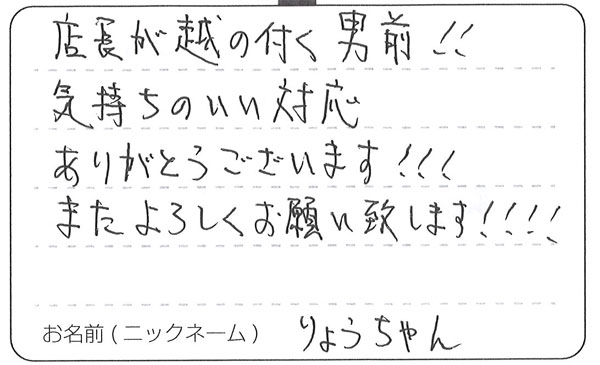 店長が越の付く男前!!
気持ちのいい対応
ありがとうございます!!!
またよろしくお願い致します!!!!
お名前(ニックネーム) りょうちゃん